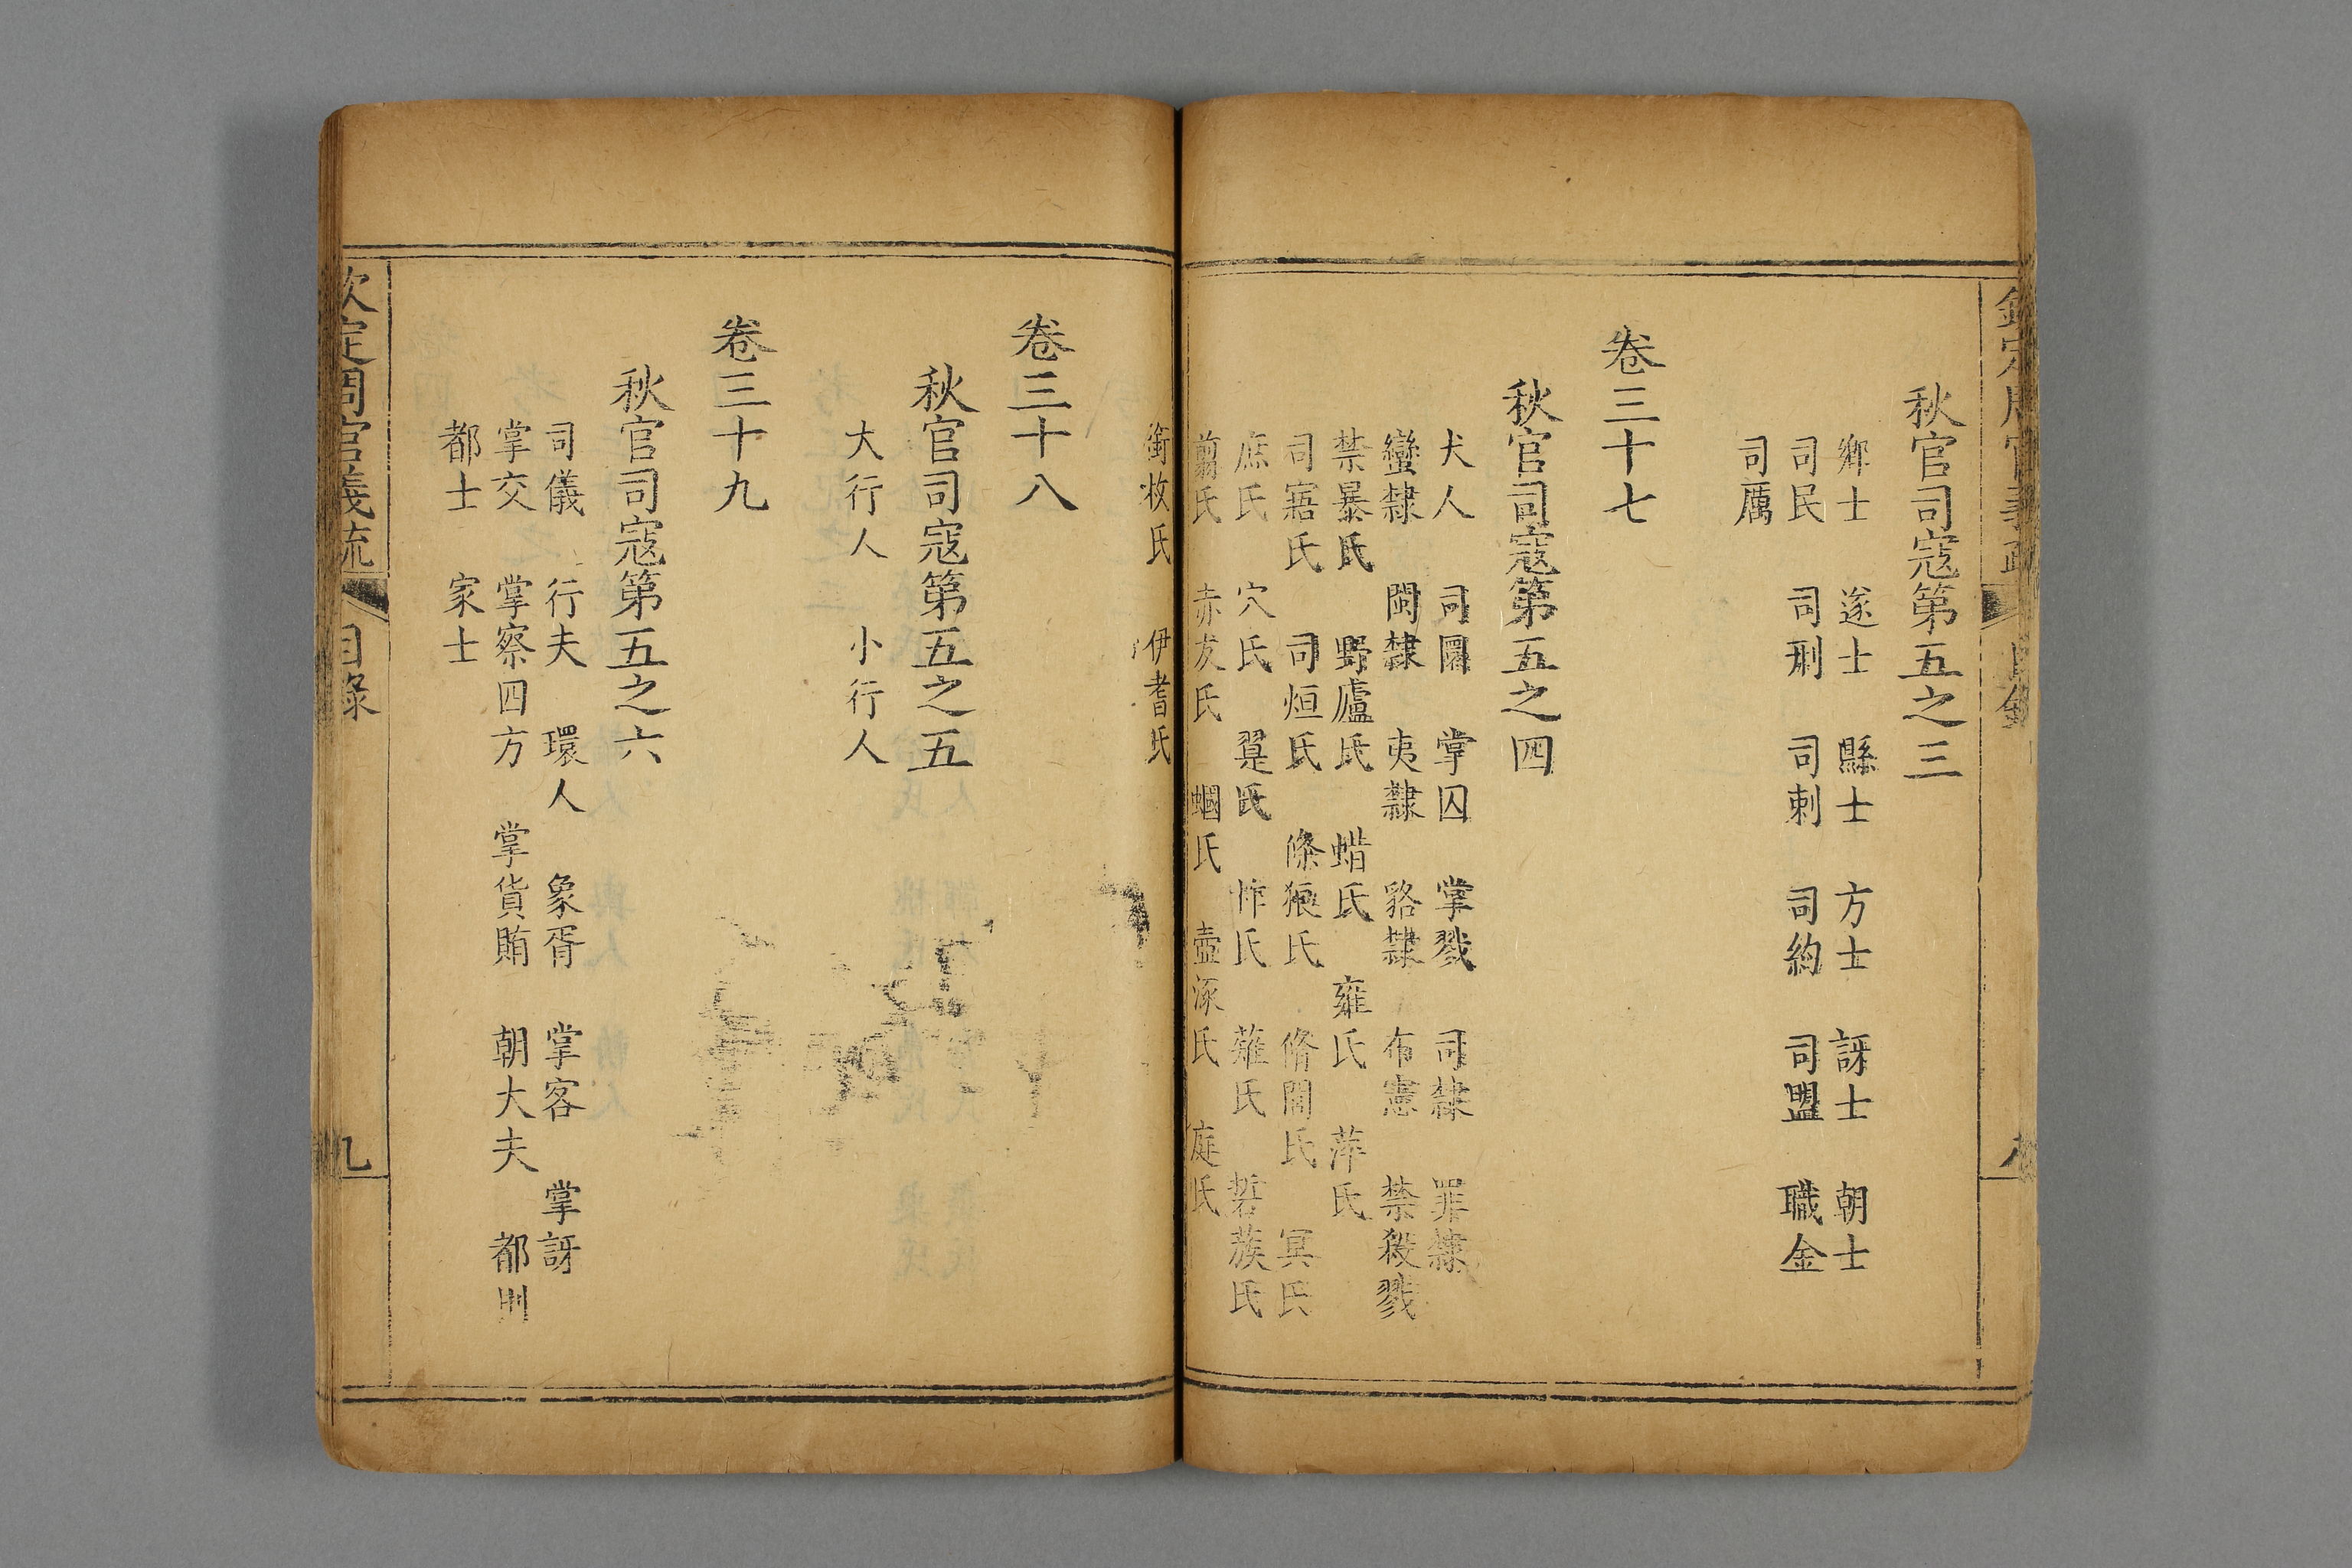 秋官司寇第五之三
鄉士　遂士　縣士　方士　訝士　朝士
司民　司刑　司刺　司約　司盟　職金
司厲
卷三十七
秋官司寇第五之四
犬人　司圜　掌囚　掌戮　司隸　罪隸
蠻隸　閩隸　夷隸　貉隸　布憲　禁殺戮
禁暴氏　野廬氏　蜡氏　雍氏　萍氏
司寤氏　司烜氏　條狼氏　脩閭氏　冥氏
庶氏　穴氏　翨氏　柞氏　薙氏　硩蔟氏
翦氏　赤犮氏　蟈氏　壺涿氏　庭氏
銜枚氏　伊耆氏
卷三十八
秋官司寇第五之五
大行人　小行人
卷三十九
秋官司寇第五之六
司儀　行夫　環人　象胥　掌客　掌訝
掌交　掌察四方　掌貨賄　朝大夫　都則
都士　家士
欽定周官義疏　目錄　九